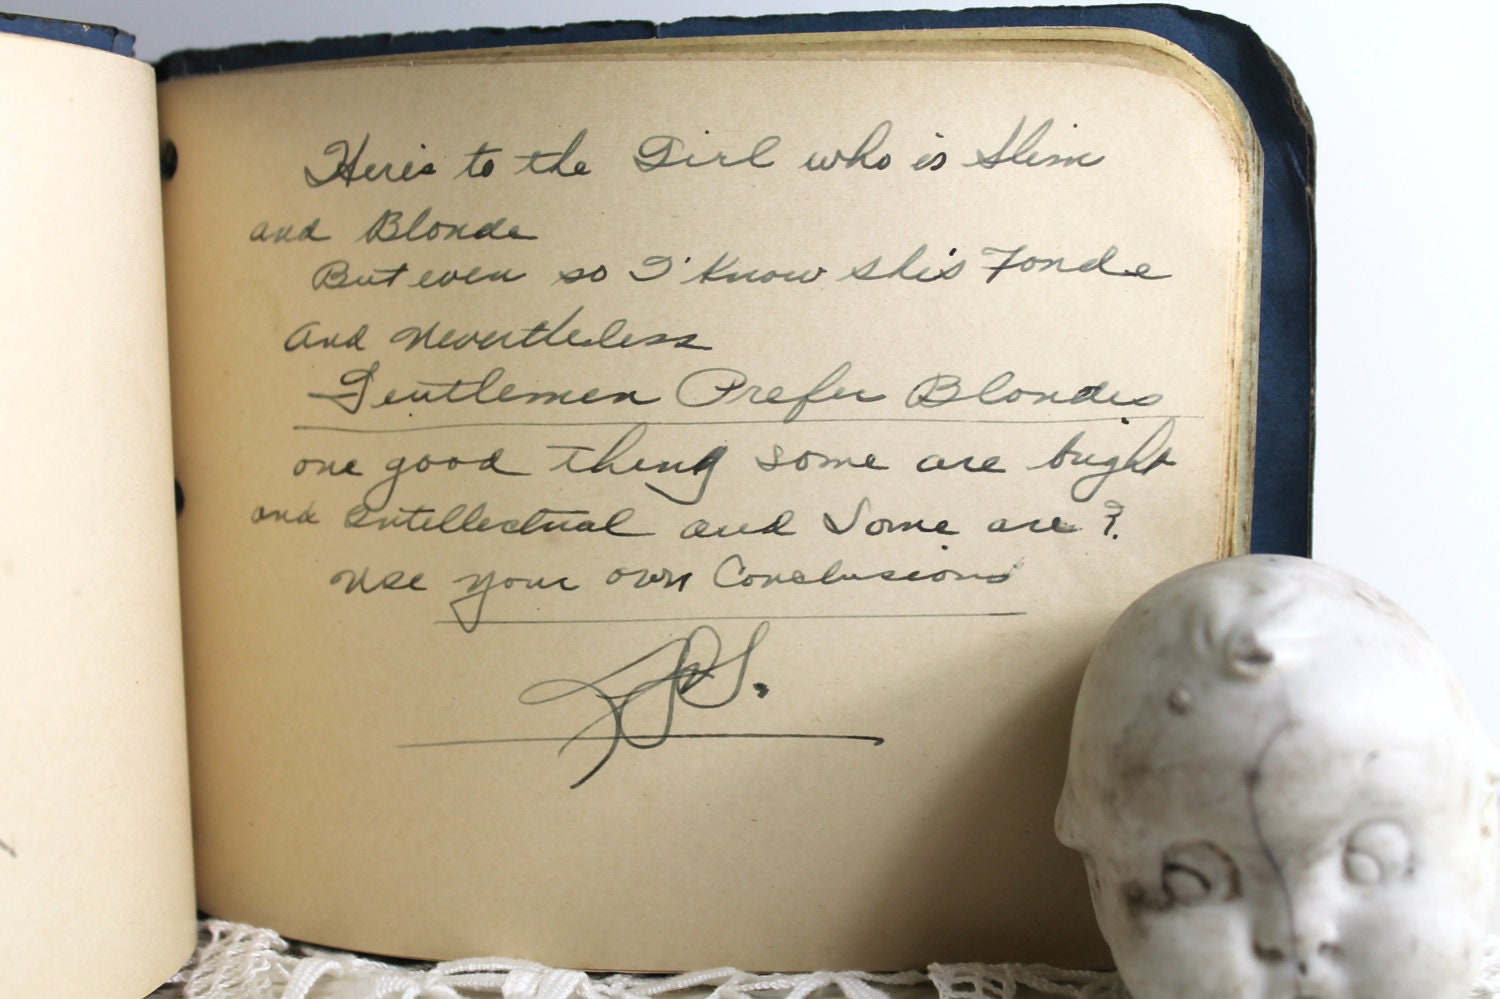 Here's to the Girl who is Slim
and Blonde
But even so I know she's Fonde
and nevertheless
Gentlemen Prefer Blondes
one good thing some are bright
and intellectual and Some are?
use your own Conclusions